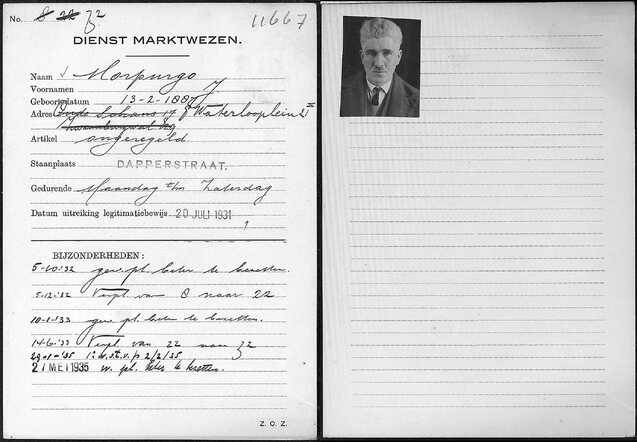 No. 8 22 32
11667
DIENST MARKTWEZEN.
Naam Morpurgo
Voornamen J
Geboortedatum 13-2-1887
Adres Oude Schans 17 Waterlooplein 2 II
Artikel ongeregeld
Staanplaats DAPPERSTRAAT.
Gedurende Maandag t/m Zaterdag
Datum uitreiking legitimatiebewijs 20 JULI 1931
BIJZONDERHEDEN:
5-10-'32 gew. pl. beter te bezetten.
5-12-'32 Verpl. van 8 naar 22
10-1-'33 gew. pl. beter te bezetten.
14-6-'33 Verpl. van 22 naar 32
29-1-'35 2/2/35
21 MEI 1935 w. pl. beter te bezetten.
Z. O. Z.